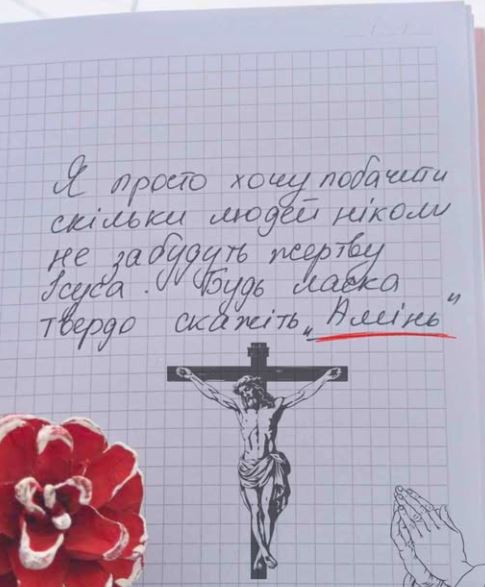 Я просто хочу побачити
скільки людей ніколи
не забудуть жертву
Ісуса. Будь ласка
твердо скажіть „Амінь"